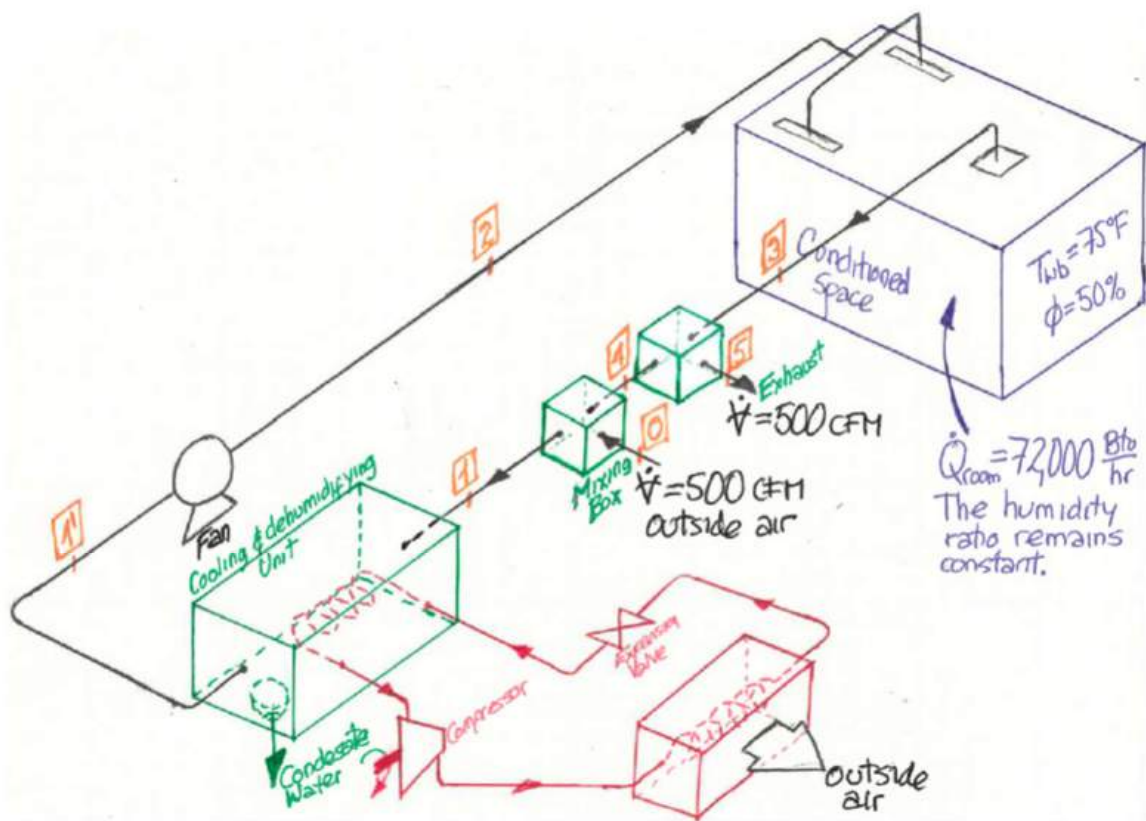 2
3
Conditioned
space
Twb=75°F
ϕ=50%
4
5
Exhaust
V̇=500 CFM
0
Mixing
Box
V̇=500 CFM
outside air
1
Q̇room=72,000 Btu/hr
The humidity
ratio remains
constant.
1'
Fan
Cooling & dehumidifying
Unit
Expansion
Valve
Compressor
Condesate
Water
outside
air